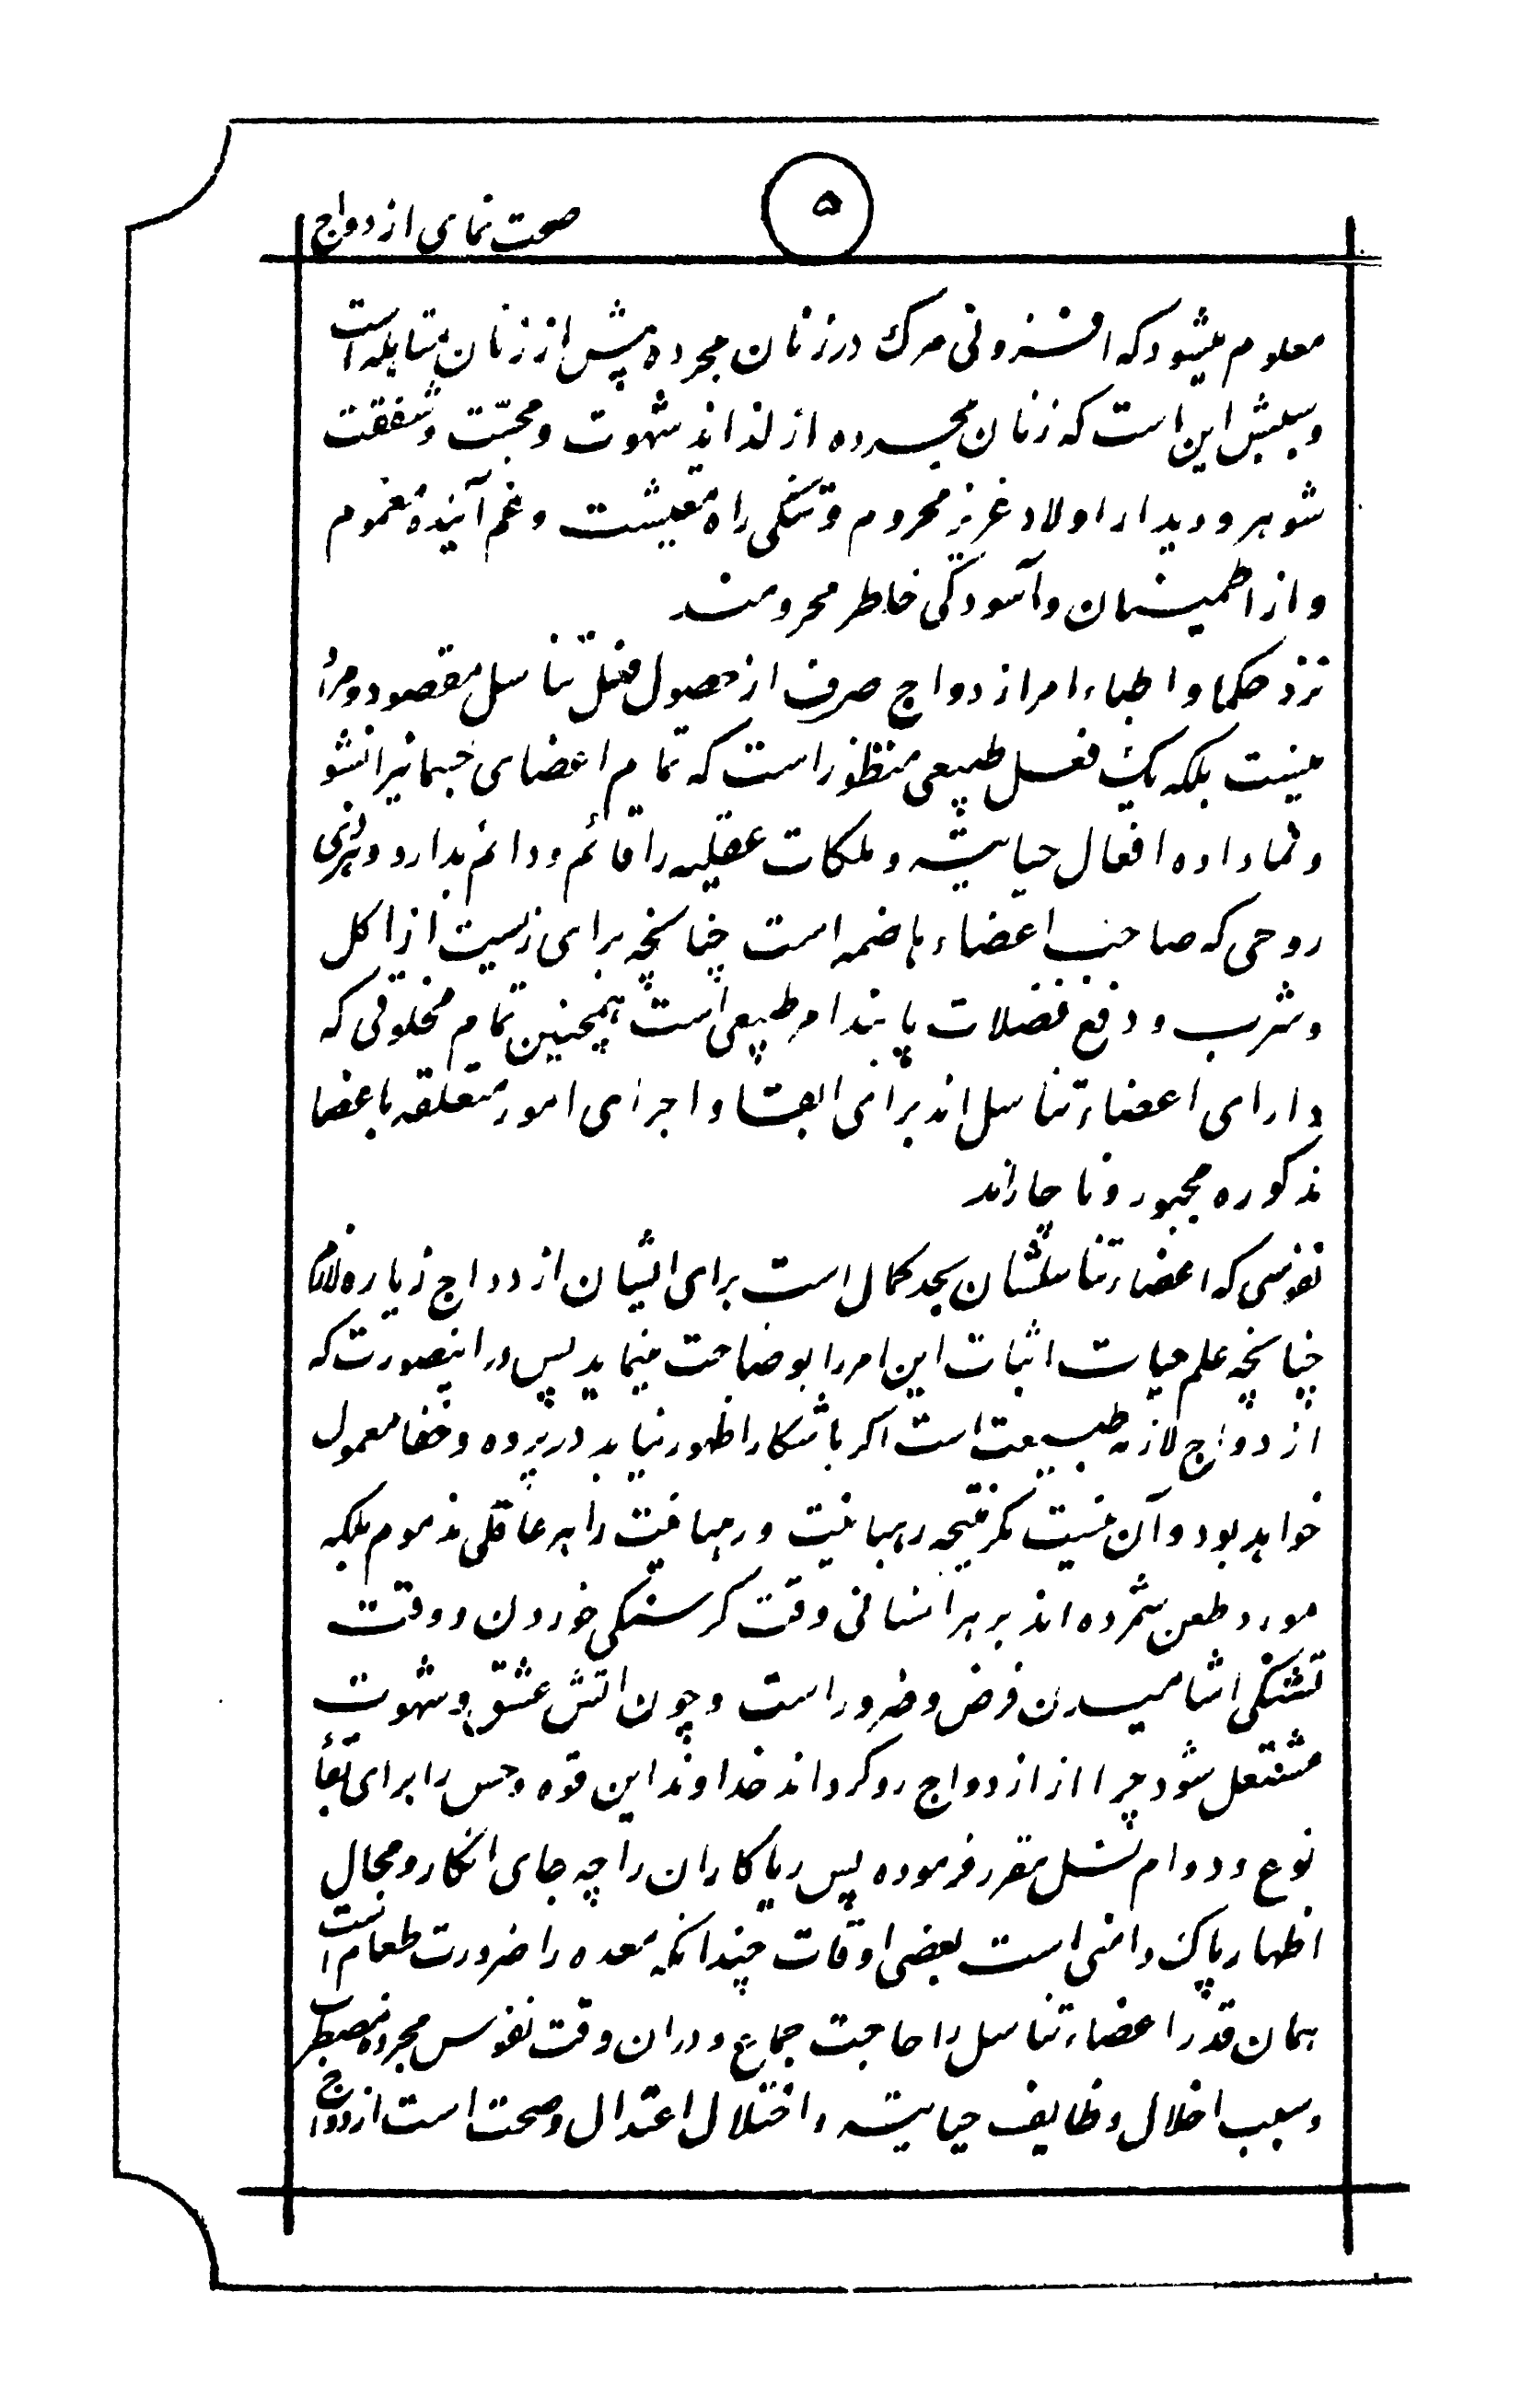 ۵
صحت نمای ازدواج
معلوم میشود که افزونی مرک در زنان مجرده بیش از زنان متاهله است
و سببش این است که زنان مجرده از لذائذ شهوت و محبّت و شفقت
شوهر و دیدار اولاد عزیز محروم و تنکی راه معیشت و غم آینده مغموم
و از اطمینان و آسودکی خاطر محرومند
نزد حکما و اطباء امر ازدواج صرف از حصول فعل تناسل مقصود و مراد
نیست بلکه یک فعل طبیعی منظور است که تمام اعضای جسمانیرا نشو
و نما داده افعال حیاتیه و ملکات عقلیه را قائم و دائم بدارد و هر ذی
روحی که صاحب اعضاء هاضمه است چنانچه برای زیست از اکل
و شرب و دفع فضلات پابند امر طبیعی است همچنین تمام مخلوقی که
دارای اعضاء تناسل اند برای ابقا و اجرای امور متعلقه باعضا
مذکوره مجبور و ناچاراند
نفوسی که اعضاء تناسلشان بحد کمال است برای ایشان ازدواج زیاده لازم
چنانچه علم حیات اثبات این امر را بوضاحت مینماید پس در اینصورت که
ازدواج لازمه طبیعت است اکر باشکارا ظهور نیابد در پرده و خفا معمول
خواهد بود و آن نیست مکر نتیجه رهبانیت و رهبانیت را هر عاقلی مذموم بلکه
مورد طعن شمرده اند بر هر انسانی وقت کرسنکی خوردن و وقت
تشنکی اشامیدن فرض و ضرور است و چون اتش عشق و شهوت
مشتعل شود چرا از ازدواج رو کرداند خداوند این قوه و حس را برای بقأ
نوع و دوام نسل مقرر فرموده پس ریاکاران را چه جای انکار و مجال
اظهار پاک دامنی است بعضی اوقات چندانکه معده را ضرورت طعام است
همان قدر اعضاء تناسل را حاجت جماع و دران وقت نفوس مجرده
و سبب اخلال وظایف حیاتیه و اختلال اعتدال و صحت است ازدواج